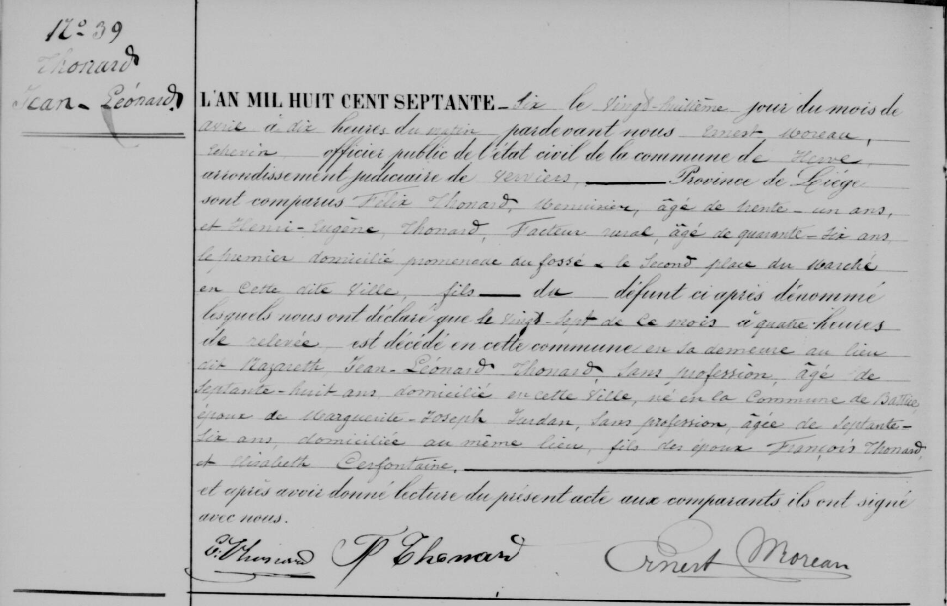 N° 39
Thonard
Jean-Léonard
L'AN MIL HUIT CENT SEPTANTE-six le vingt-huitième jour du mois de
avril à dix heures du matin pardevant nous Ernest Moreau,
Echevin officier public de l'état civil de la commune de Herve,
arrondissement judiciaire de Verviers, Province de Liége
sont comparus Félix Thonard, Menuisier, âgé de trente-un ans,
et Henri-Eugène Thonard, Facteur rural, âgé de quarante-six ans
le premier domicilié promenade du fossé - le second place du Marché
en cette dite Ville, fils du défunt ci après dénommé
lesquels nous ont déclaré que le vingt-sept de ce mois à quatre heures
de relevée est décédé en cette commune en sa demeure au lieu
dit Nazareth Jean-Léonard Thonard, sans profession, âgé de
septante-huit ans domicilié en cette Ville, né en la Commune de Battice,
époux de Marguerite-Joseph Jurdan, sans profession, âgée de septante-
six ans, domiciliée au même lieu, fils des époux François Thonard,
et Elisabeth Cerfontaine.
et après avoir donné lecture du présent acte aux comparants ils ont signé
avec nous.
Thonard Thonard Ernest Moreau